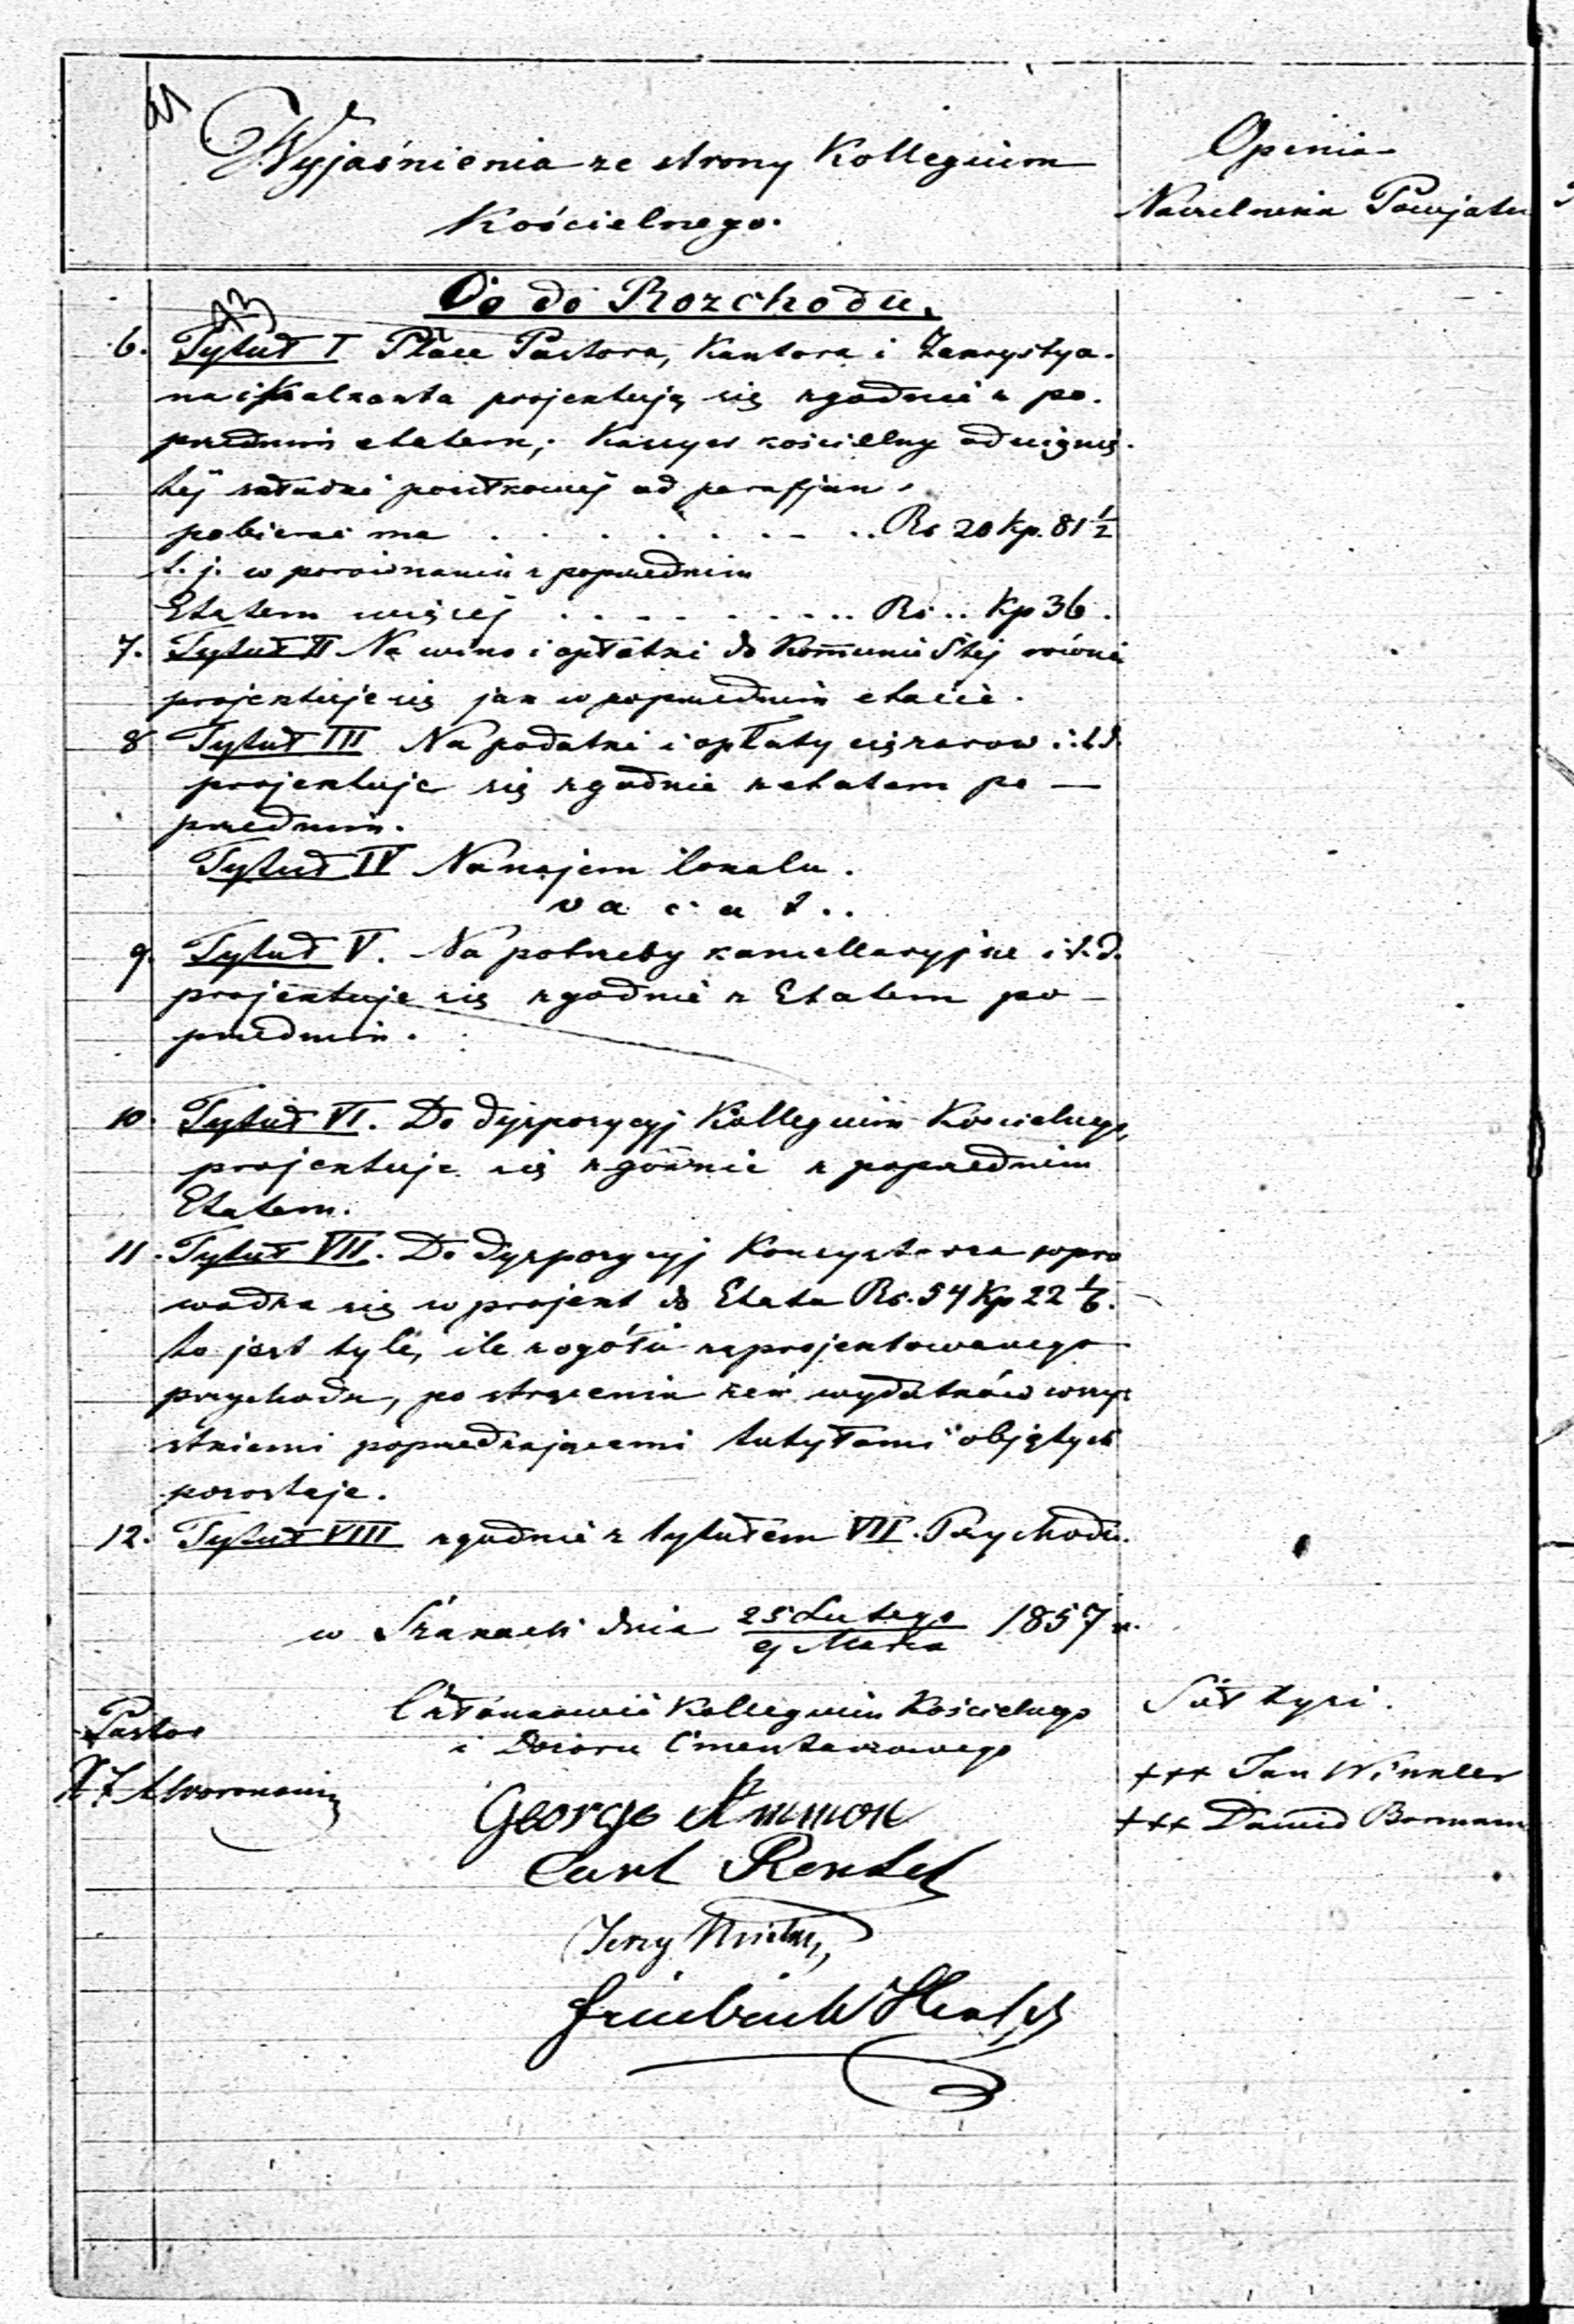 Wyjaśnienia ze strony Kollegium
Kościelnego.
Opinia
Naczelnika Powiatu
Co do Rozchodu.
6. Tytuł I Płace Pastora, Kantora i Zakrystya-
na i Kalkanta projektują się zgodnie z po-
przednim etatem; Kassyer kościelny od ściągnię-
téj składki pożytkowej od parafjan
pobierać ma . . . . . . . . Rs 20 Kp. 81 1/2
t. j. w porównaniu z poprzednim
Etatem więcéj . . . . . . . . Rs .. Kp 36.
7. Tytuł II Na wino i opłatki do Kom̄unii Stéj równie
projektuje się jak w poprzednim etacie.
8 Tytuł III Na podatki i opłaty ciężarow i.t.d.
projektuje się zgodnie z etatem po —
przednim.
Tytuł IV Na najem lokalu.
v a c a t . .
9. Tytuł V. Na potrzeby kancellaryjne i t.d.
projektuje się zgodnie z Etatem po —
przednim.
10. Tytuł VI. Do dyspozycyj Kollegium Kościelnego,
projektuje się zgodnie z poprzednim
Etatem.
11. Tytuł VII. Do dyspozycyj Konsystorza wpro
wadza się w projekt do Etatu Rs. 54 Kp 22 1/6.
to jest tyle, ile z ogółu zaprojektowanego
przychodu, po strąceniu zeń wydatków wszy-
stkiemi poprzedzającemi tutyłami objętych
pozostaje.
12. Tytuł VIII zgodnie z tytułem VII. Przychodu.
w Szakach dnia 25 Lutego / 9 Marca 1857 r.
Pastor
Członkowie Kollegium Kościelnego
i Dozoru Cmentarzowego
Sołtysi.
+++ Jan Winkler
George Ammon
+++ Dawid Bormann
Carl Rentel
Jerzy
Friedrich